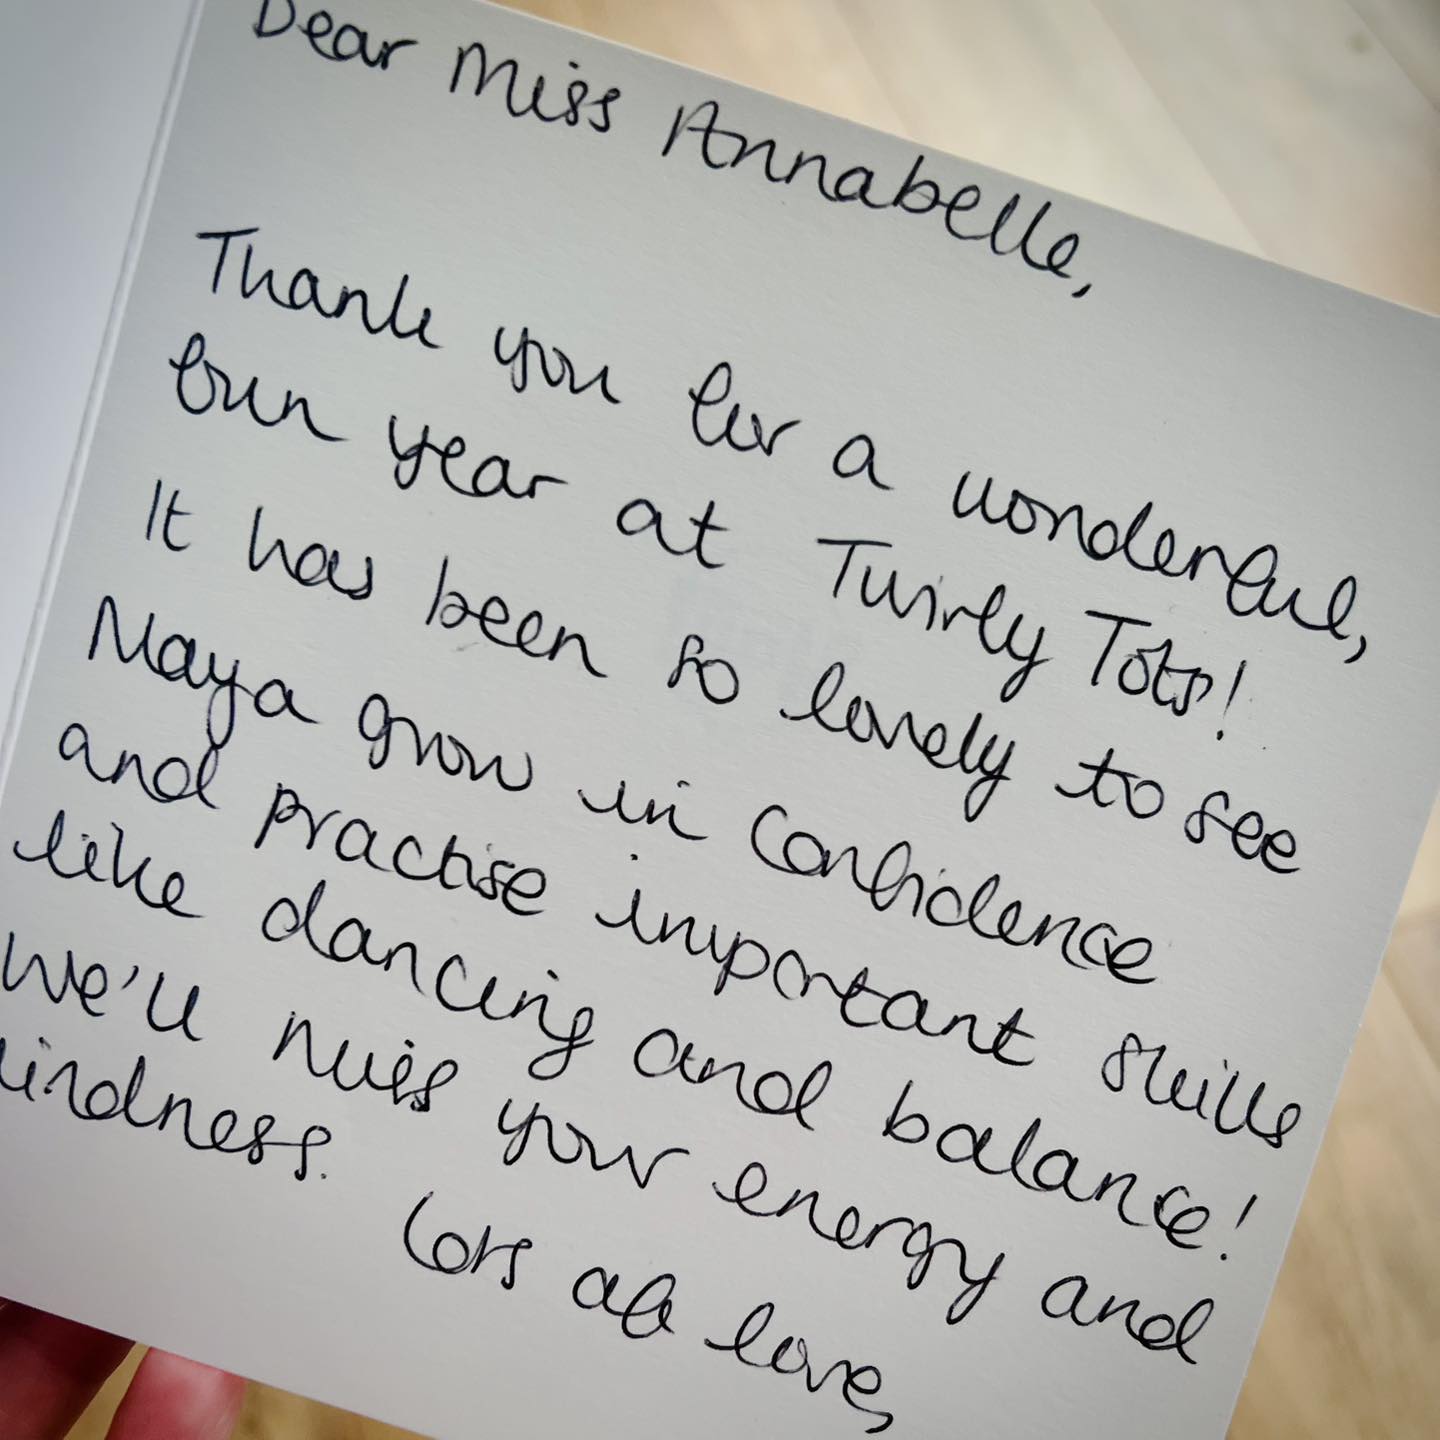 Dear Miss Annabelle,
Thank you for a wonderful,
fun year at Twirly Tots!
It has been so lovely to see
Maya grow in confidence
and practise important skills
like dancing and balance!
We'll miss your energy and
kindness.
Lots of love,